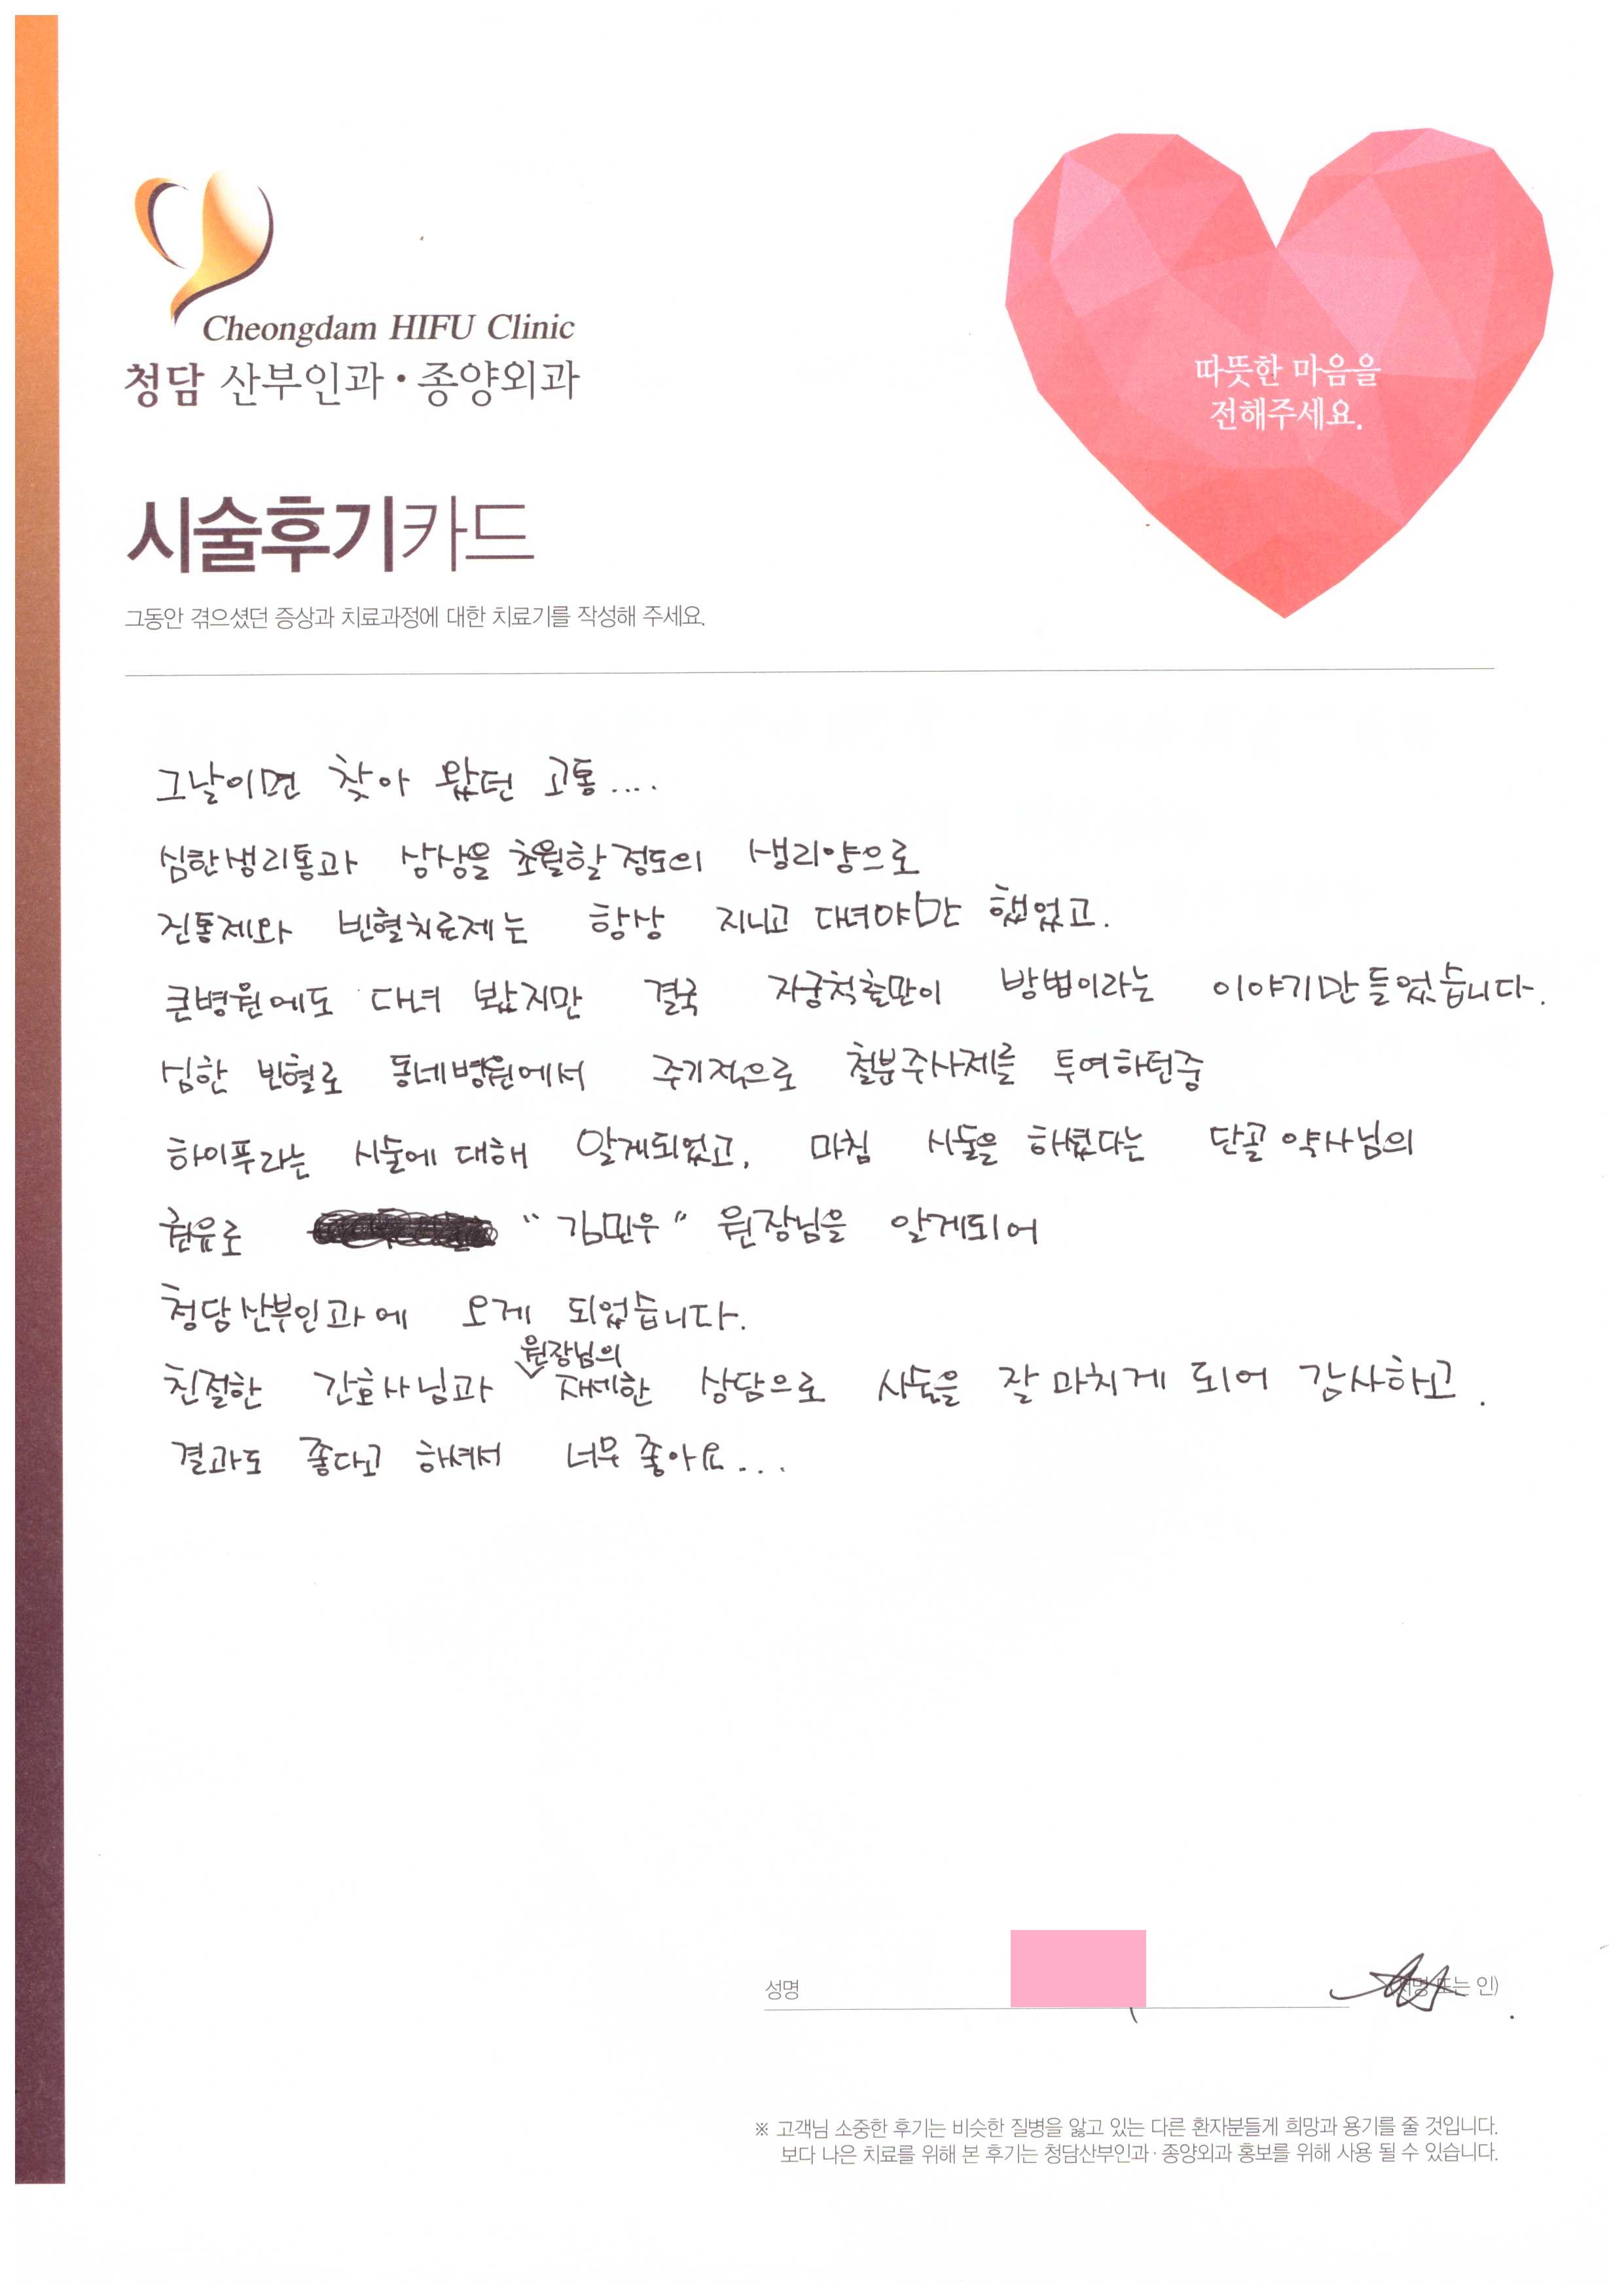 Cheongdam HIFU Clinic
청담 산부인과·종양외과
따뜻한 마음을
전해주세요.
시술후기카드
그동안 겪으셨던 증상과 치료과정에 대한 치료기를 작성해 주세요.
그날이면 찾아 왔던 고통....
심한생리통과 상상을 초월할 정도의 생리양으로
진통제와 빈혈치료제는 항상 지니고 다녀야만 했었고.
큰병원에도 다녀 봤지만 결국 자궁적출만이 방법이라는 이야기만 들었습니다.
심한 빈혈로 동네병원에서 주기적으로 철분주사제를 투여하던중
하이푸라는 시술에 대해 알게되었고, 마침 시술을 하셨다는 단골 약사님의
권유로 "김민우" 원장님을 알게되어
청담산부인과에 오게 되었습니다.
친절한 간호사님과 원장님의 자세한 상담으로 시술을 잘 마치게 되어 감사하고.
결과도 좋다고 하셔서 너무 좋아요...
성명 (서명 또는 인)
※ 고객님 소중한 후기는 비슷한 질병을 앓고 있는 다른 환자분들게 희망과 용기를 줄 것입니다.
보다 나은 치료를 위해 본 후기는 청담산부인과·종양외과 홍보를 위해 사용 될 수 있습니다.